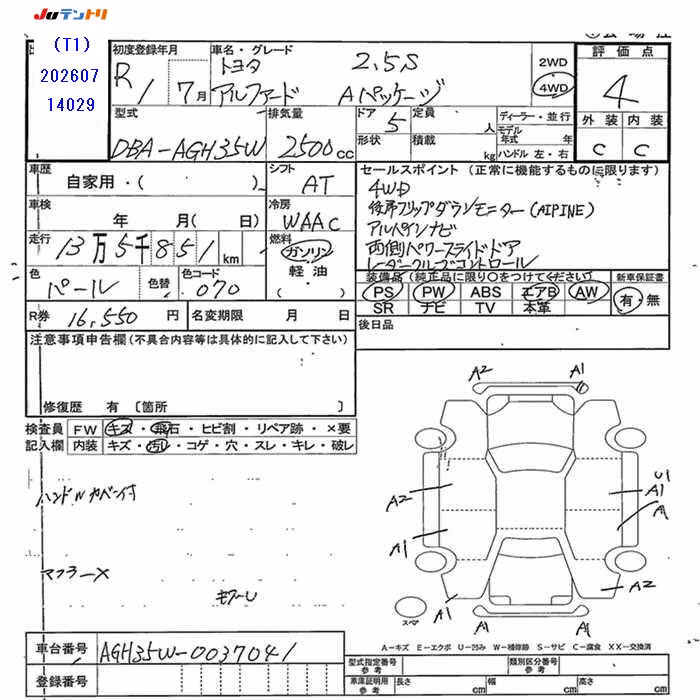 JUテントリ
(T1)
202607
14029
初度登録年月
R1/7月
車名・グレード
トヨタ 2.5S
アルファード Aパッケージ
2WD
4WD
評価点
4
外装 内装
C C
型式
DBA-AGH35W
排気量
2500cc
ドア 5
定員 人
形状
積載 kg
ディーラー・並行
モデル年式 年
ハンドル 左・右
車歴
自家用・( )
シフト
AT
セールスポイント (正常に機能するものに限ります)
4WD
後席フリップダウンモニター(AIPINE)
アルペインナビ
両側パワースライドドア
レーダークルーズコントロール
車検
年 月( 日)
冷房
WAAC
走行
13万5千851km
燃料
ガソリン
軽油
( ・ )
色
パール
色替
色コード
070
装備品(純正品に限り〇をつけてください)
PS PW ABS エアB AW
SR ナビ TV 本革
新車保証書
有・無
R券 16,550円
名変期限 月 日
後日品
注意事項申告欄(不具合内容等は具体的に記入して下さい)
修復歴 有 〔箇所 〕
検査員記入欄
FW キズ・飛石・ヒビ割・リペア跡・×要
内装 キズ・汚レ・コゲ・穴・スレ・キレ・破レ
ハンドルカバー付
マフラーX
A2 A1
A2
U1
A1
A1
A1
A1 A2
A1 A1
スペア
A-キズ E-エクボ U-凹み W-補修跡 S-サビ C-腐食 XX-交換済
車台番号
AGH35W-0037041
登録番号
型式指定番号 参考
類別区分番号 参考
車庫証明用 参考
長さ cm
幅 cm
高さ cm